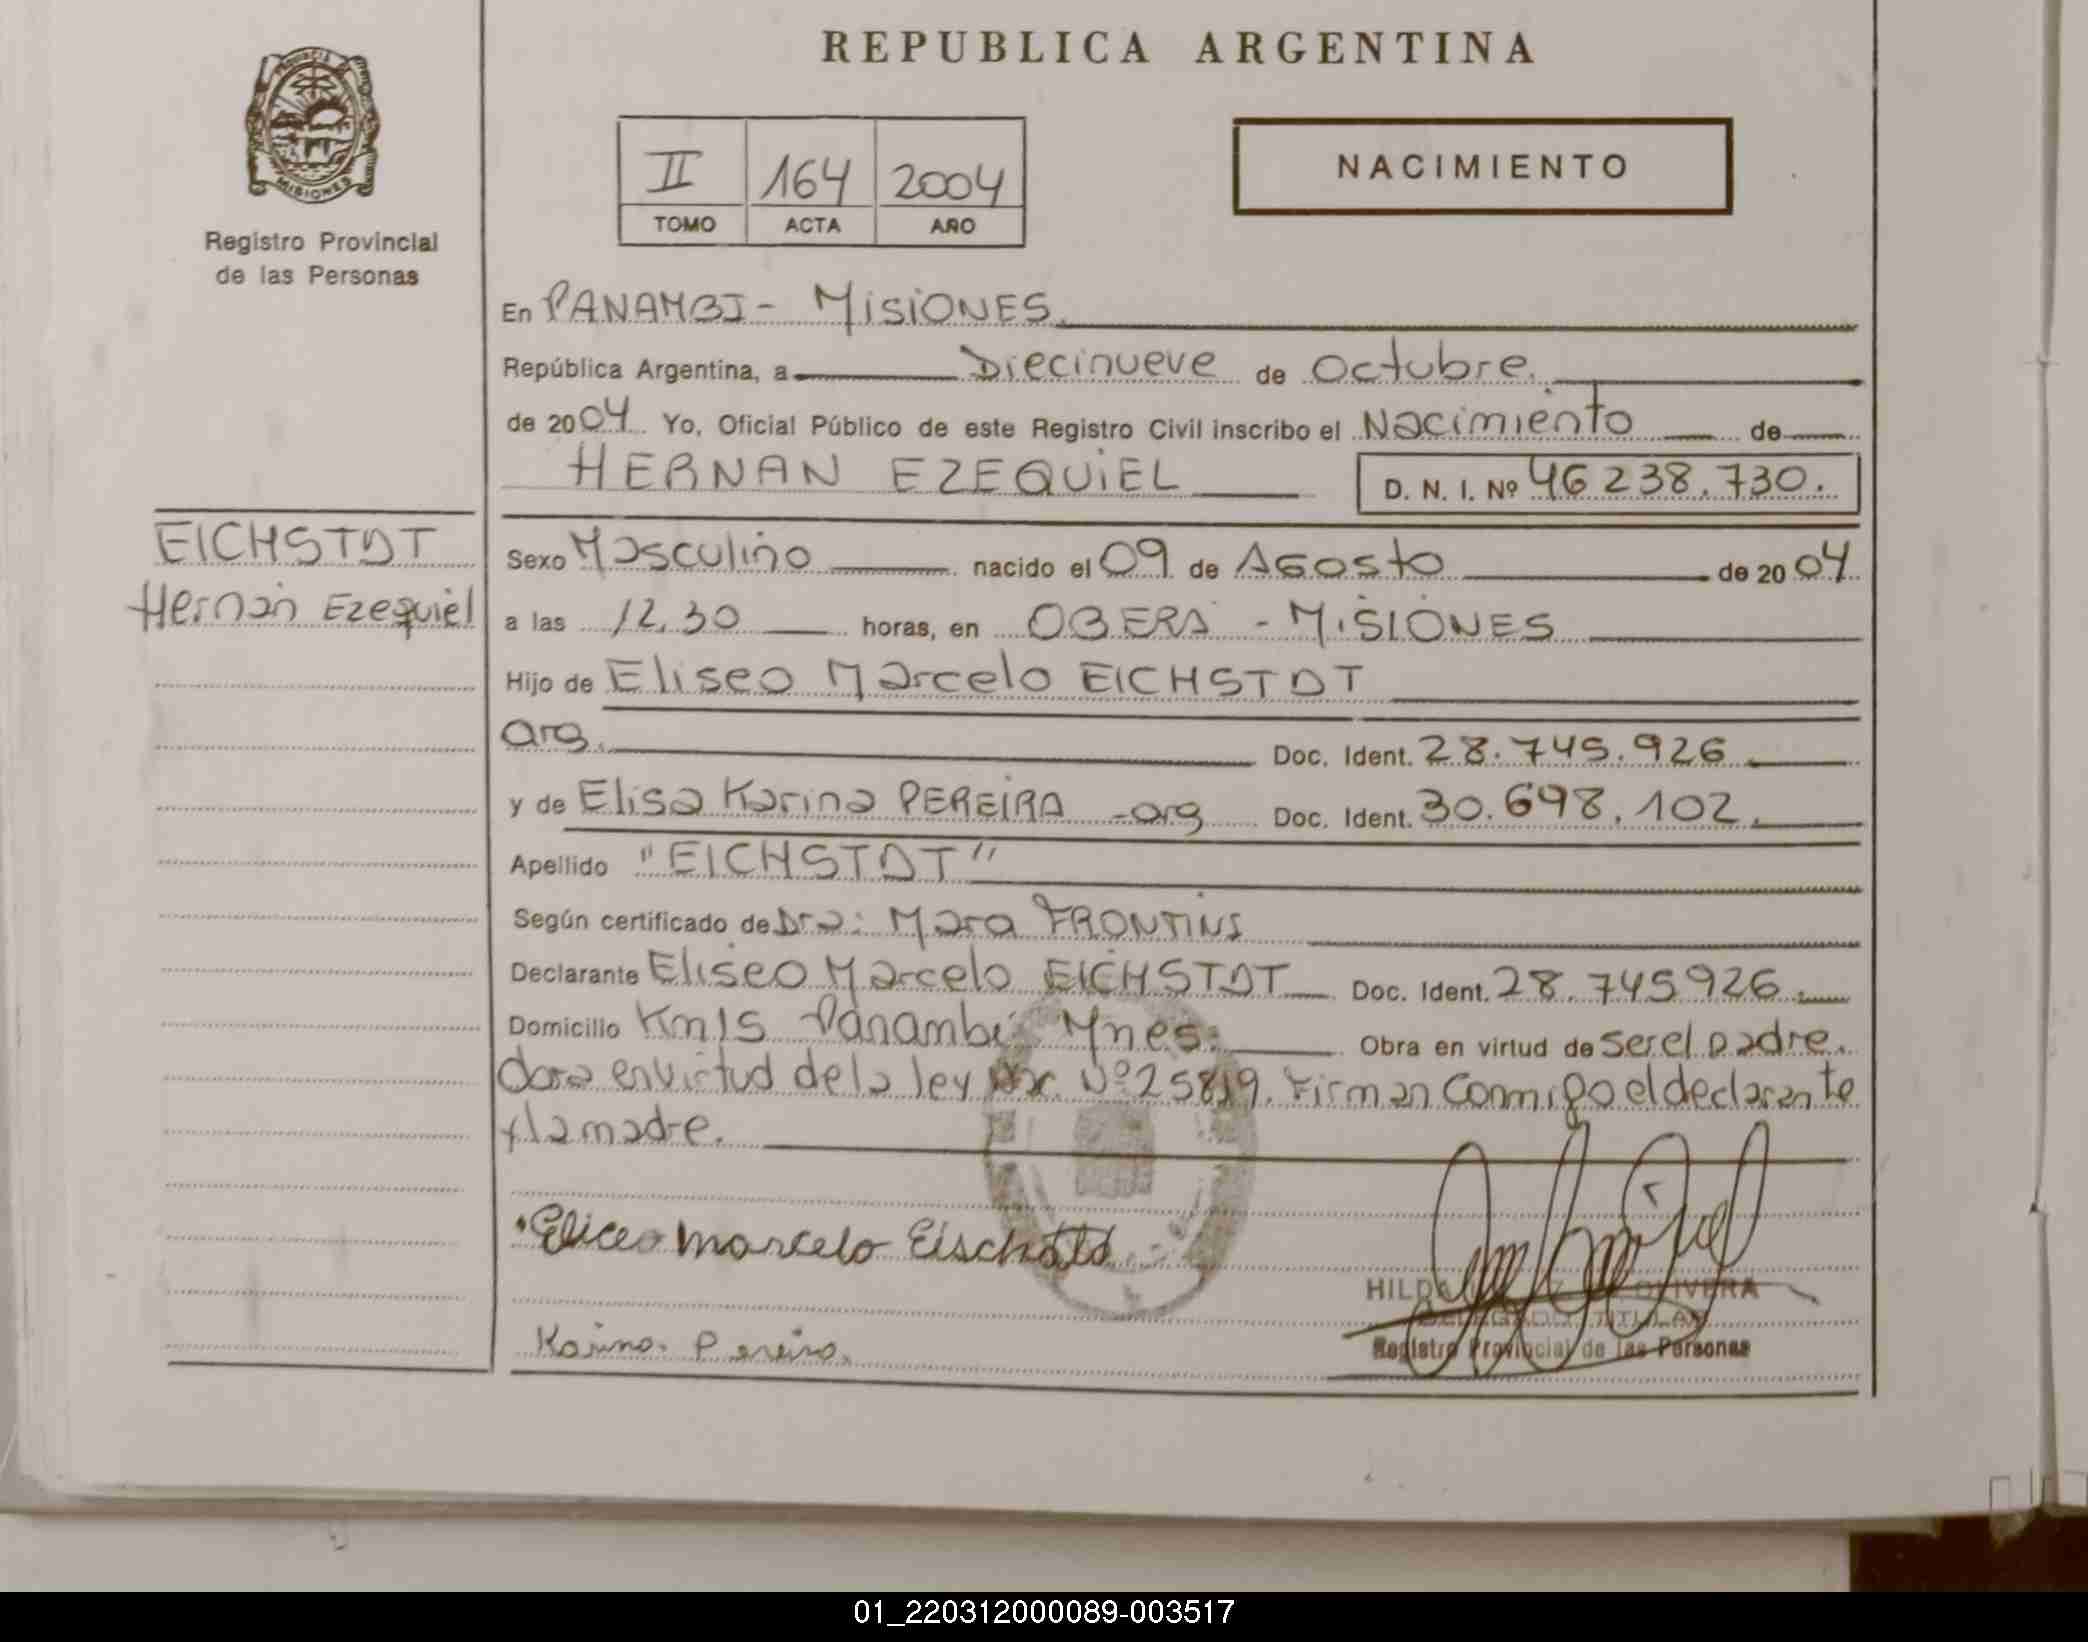 REPUBLICA ARGENTINA
PROVINCIA DE
MISIONES
Registro Provincial
de las Personas
II 164 2004
TOMO ACTA AÑO
NACIMIENTO
En PANAMBI - MISIONES
República Argentina, a Diecinueve de Octubre.
de 2004 Yo, Oficial Público de este Registro Civil inscribo el Nacimiento de
HERNAN EZEQUIEL D. N. I. Nº 46238.730.
EICHSTDT
Hernán Ezequiel
Sexo Masculino nacido el 09 de Agosto de 2004
a las 12.30 horas, en OBERA - MISIONES
Hijo de Eliseo Marcelo EICHSTDT
arg. Doc. Ident. 28.745.926
y de Elisa Karina PEREIRA - arg Doc. Ident. 30.698.102.
Apellido "EICHSTDT"
Según certificado de Dra: Mara FRONTINI
Declarante Eliseo Marcelo EICHSTDT Doc. Ident. 28.745926.
Domicilio Km 15 Panambí Mnes. Obra en virtud de ser el padre.
en virtud de la ley Nº 25819. Firman conmigo el declarante
y la madre.
Eliceo marcelo
Karina. Pereira.
HILDA OLIVERA
DELEGADO TITULAR
Registro Provincial de las Personas
01_220312000089-003517